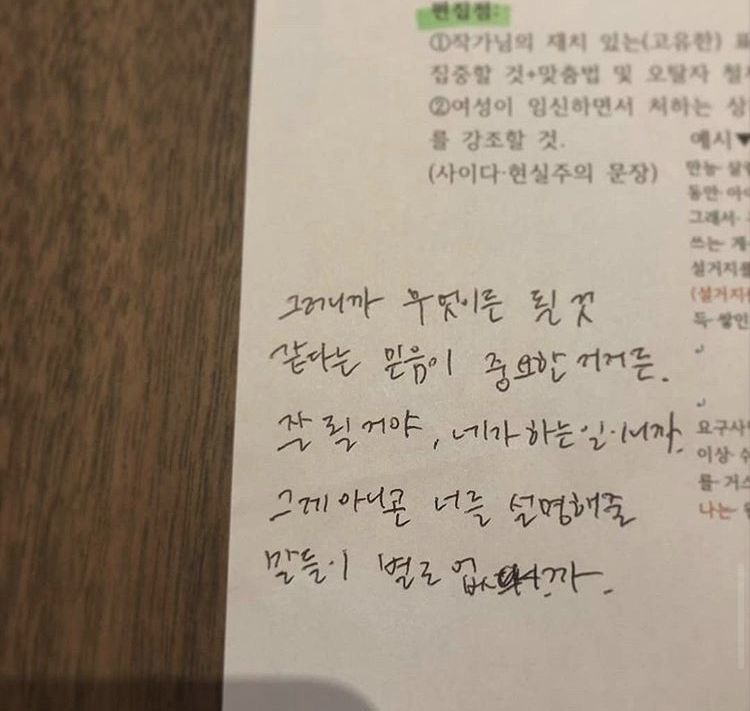 편집점:
①작가님의 재치 있는(고유한) 표
집중할 것+맞춤법 및 오탈자 철
②여성이 임신하면서 처하는 상
를 강조할 것.
(사이다·현실주의 문장)
예시▼
만능 살
동안 아
그래서
쓰는 게
설거지를
(설거지
득 쌓인
요구사
이상 수
를 거스
나는
그러니까 무엇이든 될 것
같다는 믿음이 중요한 거거든.
잘 될 거야, 네가 하는 일이니까.
그게 아니곤 너를 설명해줄
말들이 별로 없으니까.